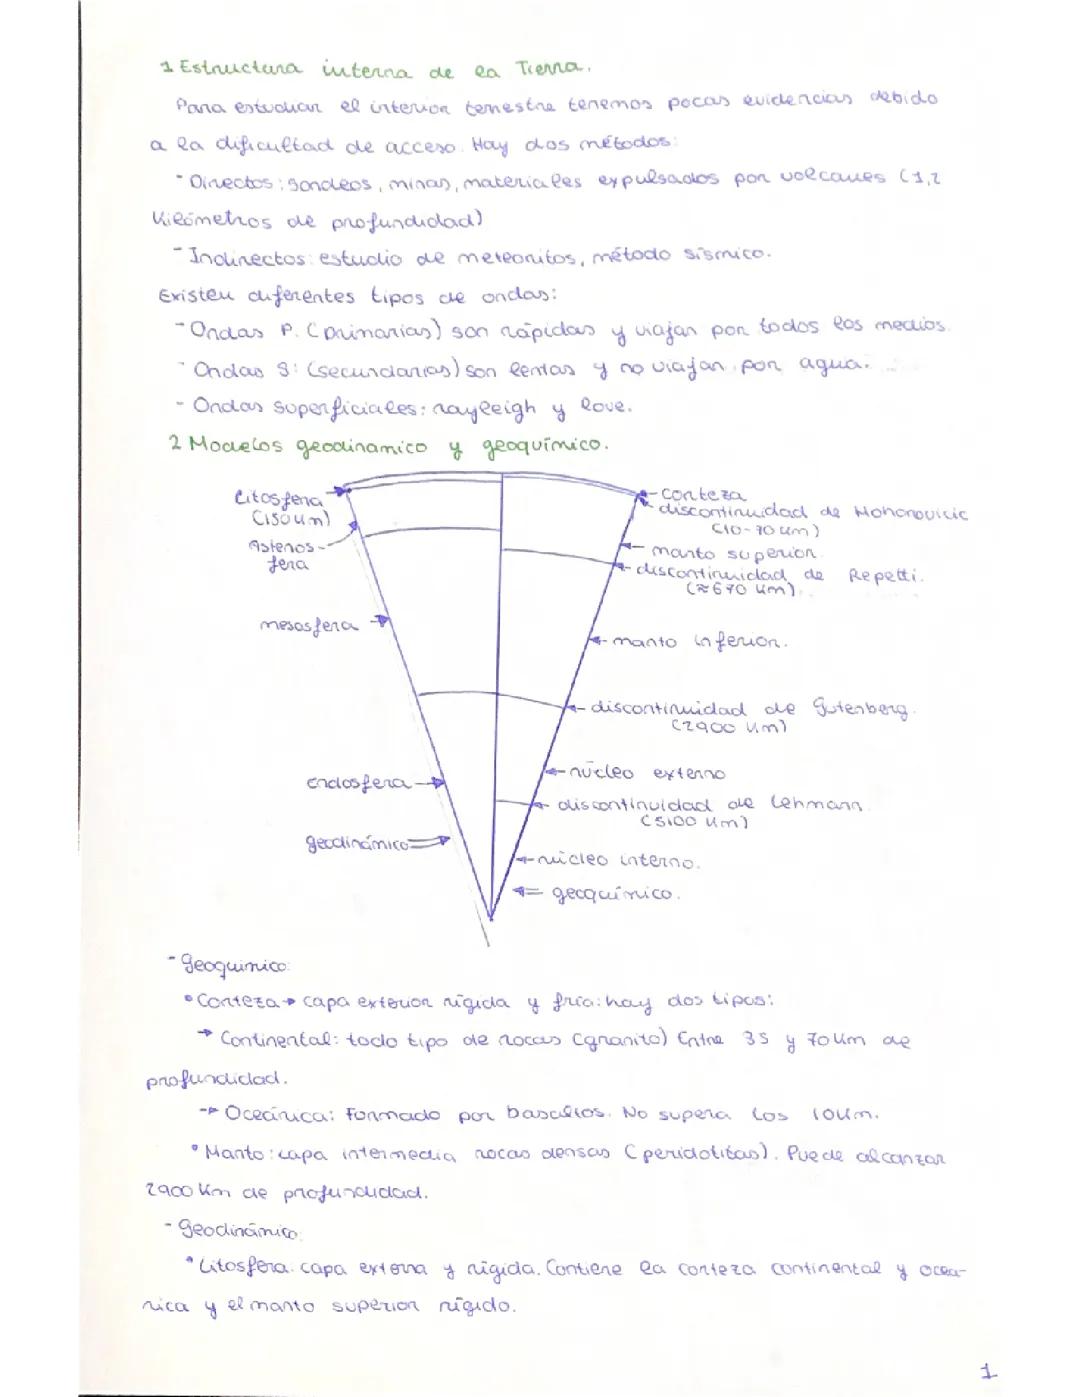 1 Estructura interna de la Tierra.
Para estudiar el interior terrestre tenemos pocas evidencias debido
a la dificultad de acceso. Hay dos métodos:
- Directos: sondeos, minas, materiales expulsados por volcanes (1,2
Kilómetros de profundidad)
- Indirectos: estudio de meteoritos, método sísmico.
Existen diferentes tipos de ondas:
- Ondas P. (primarias) son rápidas y viajan por todos los medios.
- Ondas S: (secundarias) son lentas y no viajan por agua.
- Ondas superficiales: rayleigh y love.
2 Modelos geodinamico y geoquímico.
Litosfera
(150 km)
Astenos-
fera
mesosfera
endosfera
geodinámico
- corteza
discontinuidad de Mohorovicic
(10-70 km)
- manto superior.
- discontinuidad de Repetti.
(≈670 km)
- manto inferior.
- discontinuidad de Gutenberg.
(2900 km)
- núcleo externo
- discontinuidad de Lehmann.
(5100 km)
- núcleo interno.
geoquímico.
- Geoquimico:
• Corteza → capa exterior rígida y fría: hay dos tipos:
→ Continental: todo tipo de rocas (granito) Entre 35 y 70 km de
profundidad.
→ Oceánica: Formado por basaltos. No supera los 10 km.
• Manto: capa intermedia rocas densas (peridotitas). Puede alcanzar
2900 km de profundidad.
- Geodinámico:
• Litosfera: capa externa y rígida. Contiene la corteza continental y oceá-
nica y el manto superior rígido.
1